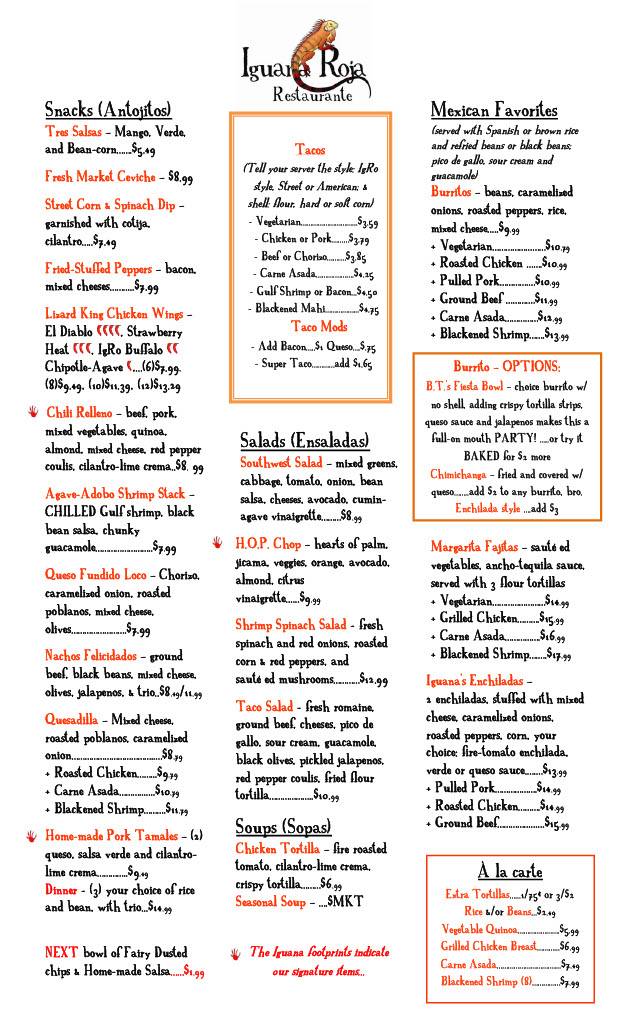 Iguana Roja
Restaurante
Snacks (Antojitos)
Tres Salsas – Mango, Verde,
and Bean-corn......$5.49
Fresh Market Ceviche – $8.99
Street Corn & Spinach Dip –
garnished with cotija,
cilantro....$7.49
Fried-Stuffed Peppers – bacon,
mixed cheeses..........$7.99
Lizard King Chicken Wings –
El Diablo, Strawberry
Heat, IgRo Buffalo
Chipotle-Agave ....(6)$7.99,
(8)$9.49, (10)$11.39, (12)$13.29
Chili Relleno – beef, pork,
mixed vegetables, quinoa,
almond, mixed cheese, red pepper
coulis, cilantro-lime crema..$8. 99
Agave-Adobo Shrimp Stack –
CHILLED Gulf shrimp, black
bean salsa, chunky
guacamole.........................$7.99
Queso Fundido Loco – Chorizo,
caramelized onion, roasted
poblanos, mixed cheese,
olives........................$7.99
Nachos Felicidados – ground
beef, black beans, mixed cheese,
olives, jalapenos, & trio..$8.49/11.99
Quesadilla – Mixed cheese,
roasted poblanos, caramelized
onion........................................$8.79
+ Roasted Chicken........$9.79
+ Carne Asada...............$10.79
+ Blackened Shrimp.......$11.79
Home-made Pork Tamales – (2)
queso, salsa verde and cilantro-
lime crema.............$9.49
Dinner – (3) your choice of rice
and bean, with trio...$14.99
NEXT bowl of Fairy Dusted
chips & Home-made Salsa......$1.99
Tacos
(Tell your server the style; IgRo
style, Street or American; &
shell: flour, hard or soft corn)
- Vegetarian........................$3.59
- Chicken or Pork........$3.79
- Beef or Chorizo.........$3.85
- Carne Asada......................$4.25
- Gulf Shrimp or Bacon..$4.50
- Blackened Mahi..............$4.75
Taco Mods
- Add Bacon....$1 Queso....$.75
- Super Taco..........add $1.65
Salads (Ensaladas)
Southwest Salad – mixed greens,
cabbage, tomato, onion, bean
salsa, cheeses, avocado, cumin-
agave vinaigrette.........$8.99
H.O.P. Chop – hearts of palm,
jicama, veggies, orange, avocado,
almond, citrus
vinaigrette......$9.99
Shrimp Spinach Salad – fresh
spinach and red onions, roasted
corn & red peppers, and
sauté ed mushrooms...........$12.99
Taco Salad – fresh romaine,
ground beef, cheeses, pico de
gallo, sour cream, guacamole,
black olives, pickled jalapenos,
red pepper coulis, fried flour
tortilla...................$10.99
Soups (Sopas)
Chicken Tortilla – fire roasted
tomato, cilantro-lime crema,
crispy tortilla.........$6.99
Seasonal Soup – ....$MKT
The Iguana footprints indicate
our signature items...
Mexican Favorites
(served with Spanish or brown rice
and refried beans or black beans;
pico de gallo, sour cream and
guacamole)
Burritos – beans, caramelized
onions, roasted peppers, rice,
mixed cheese.....$9.99
+ Vegetarian.......................$10.79
+ Roasted Chicken ......$10.99
+ Pulled Pork...............$10.99
+ Ground Beef ............$11.99
+ Carne Asada.............$12.99
+ Blackened Shrimp......$13.99
Burrito – OPTIONS:
B.T.'s Fiesta Bowl – choice burrito w/
no shell, adding crispy tortilla strips,
queso sauce and jalapenos makes this a
full-on mouth PARTY! .....or try it
BAKED for $2 more
Chimichanga – fried and covered w/
queso.......add $2 to any burrito, bro.
Enchilada style ....add $3
Margarita Fajitas – sauté ed
vegetables, ancho-tequila sauce,
served with 3 flour tortillas
+ Vegetarian.......................$14.99
+ Grilled Chicken.........$15.99
+ Carne Asada..............$16.99
+ Blackened Shrimp.......$17.99
Iguana's Enchiladas –
2 enchiladas, stuffed with mixed
cheese, caramelized onions,
roasted peppers, corn, your
choice: fire-tomato enchilada,
verde or queso sauce.......$13.99
+ Pulled Pork.................$14.99
+ Roasted Chicken........$14.99
+ Ground Beef....................$15.99
À la carte
Extra Tortillas.....1/75¢ or 3/$2
Rice &/or Beans...$2.49
Vegetable Quinoa.................$5.99
Grilled Chicken Breast.........$6.99
Carne Asada..........................$7.49
Blackened Shrimp (8)...........$7.99